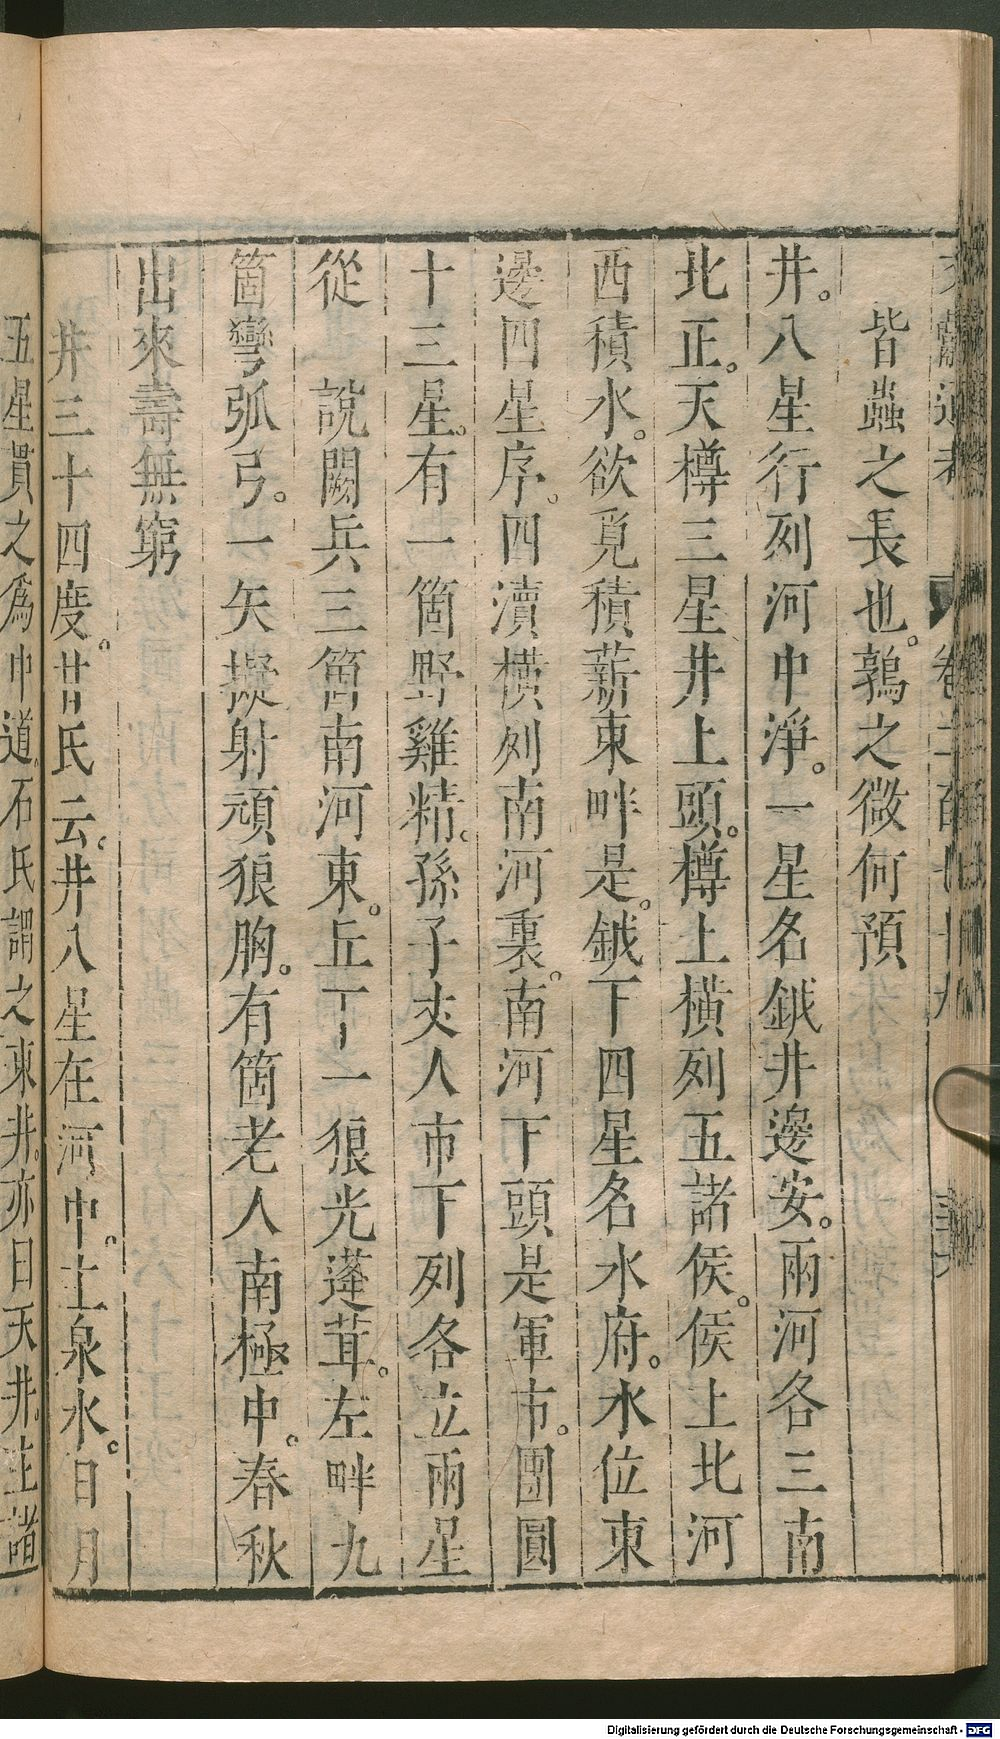 文獻通考 卷二百七十九
皆蟲之長也。鶉之微何預
井。八星行列河中淨。一星名鉞井邊安。兩河各三南
北正。天樽三星井上頭。樽上橫列五諸侯。侯上北河
西積水。欲覓積薪東畔是。鉞下四星名水府。水位東
邊四星序。四瀆橫列南河裏。南河下頭是軍市。團圓
十三星。有一箇野雞精。孫子丈人市下列各立兩星
從 說闕兵三箇南河東。丘丁一狼光蓬茸。左畔九
箇彎弧弓。一矢擬射頑狼胸。有箇老人南極中。春秋
出來壽無窮
井三十四度。甘氏云。井八星在河中。主泉水。日月
五星貫之爲中道。石氏謂之東井。亦曰天井。主諸
Digitalisierung gefördert durch die Deutsche Forschungsgemeinschaft - DFG